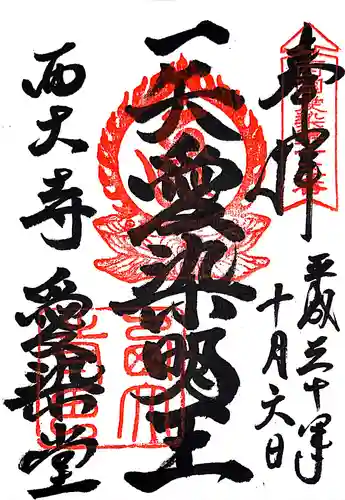 奉拝
平成三十年
十月六日
愛染明王
西大寺 愛染堂